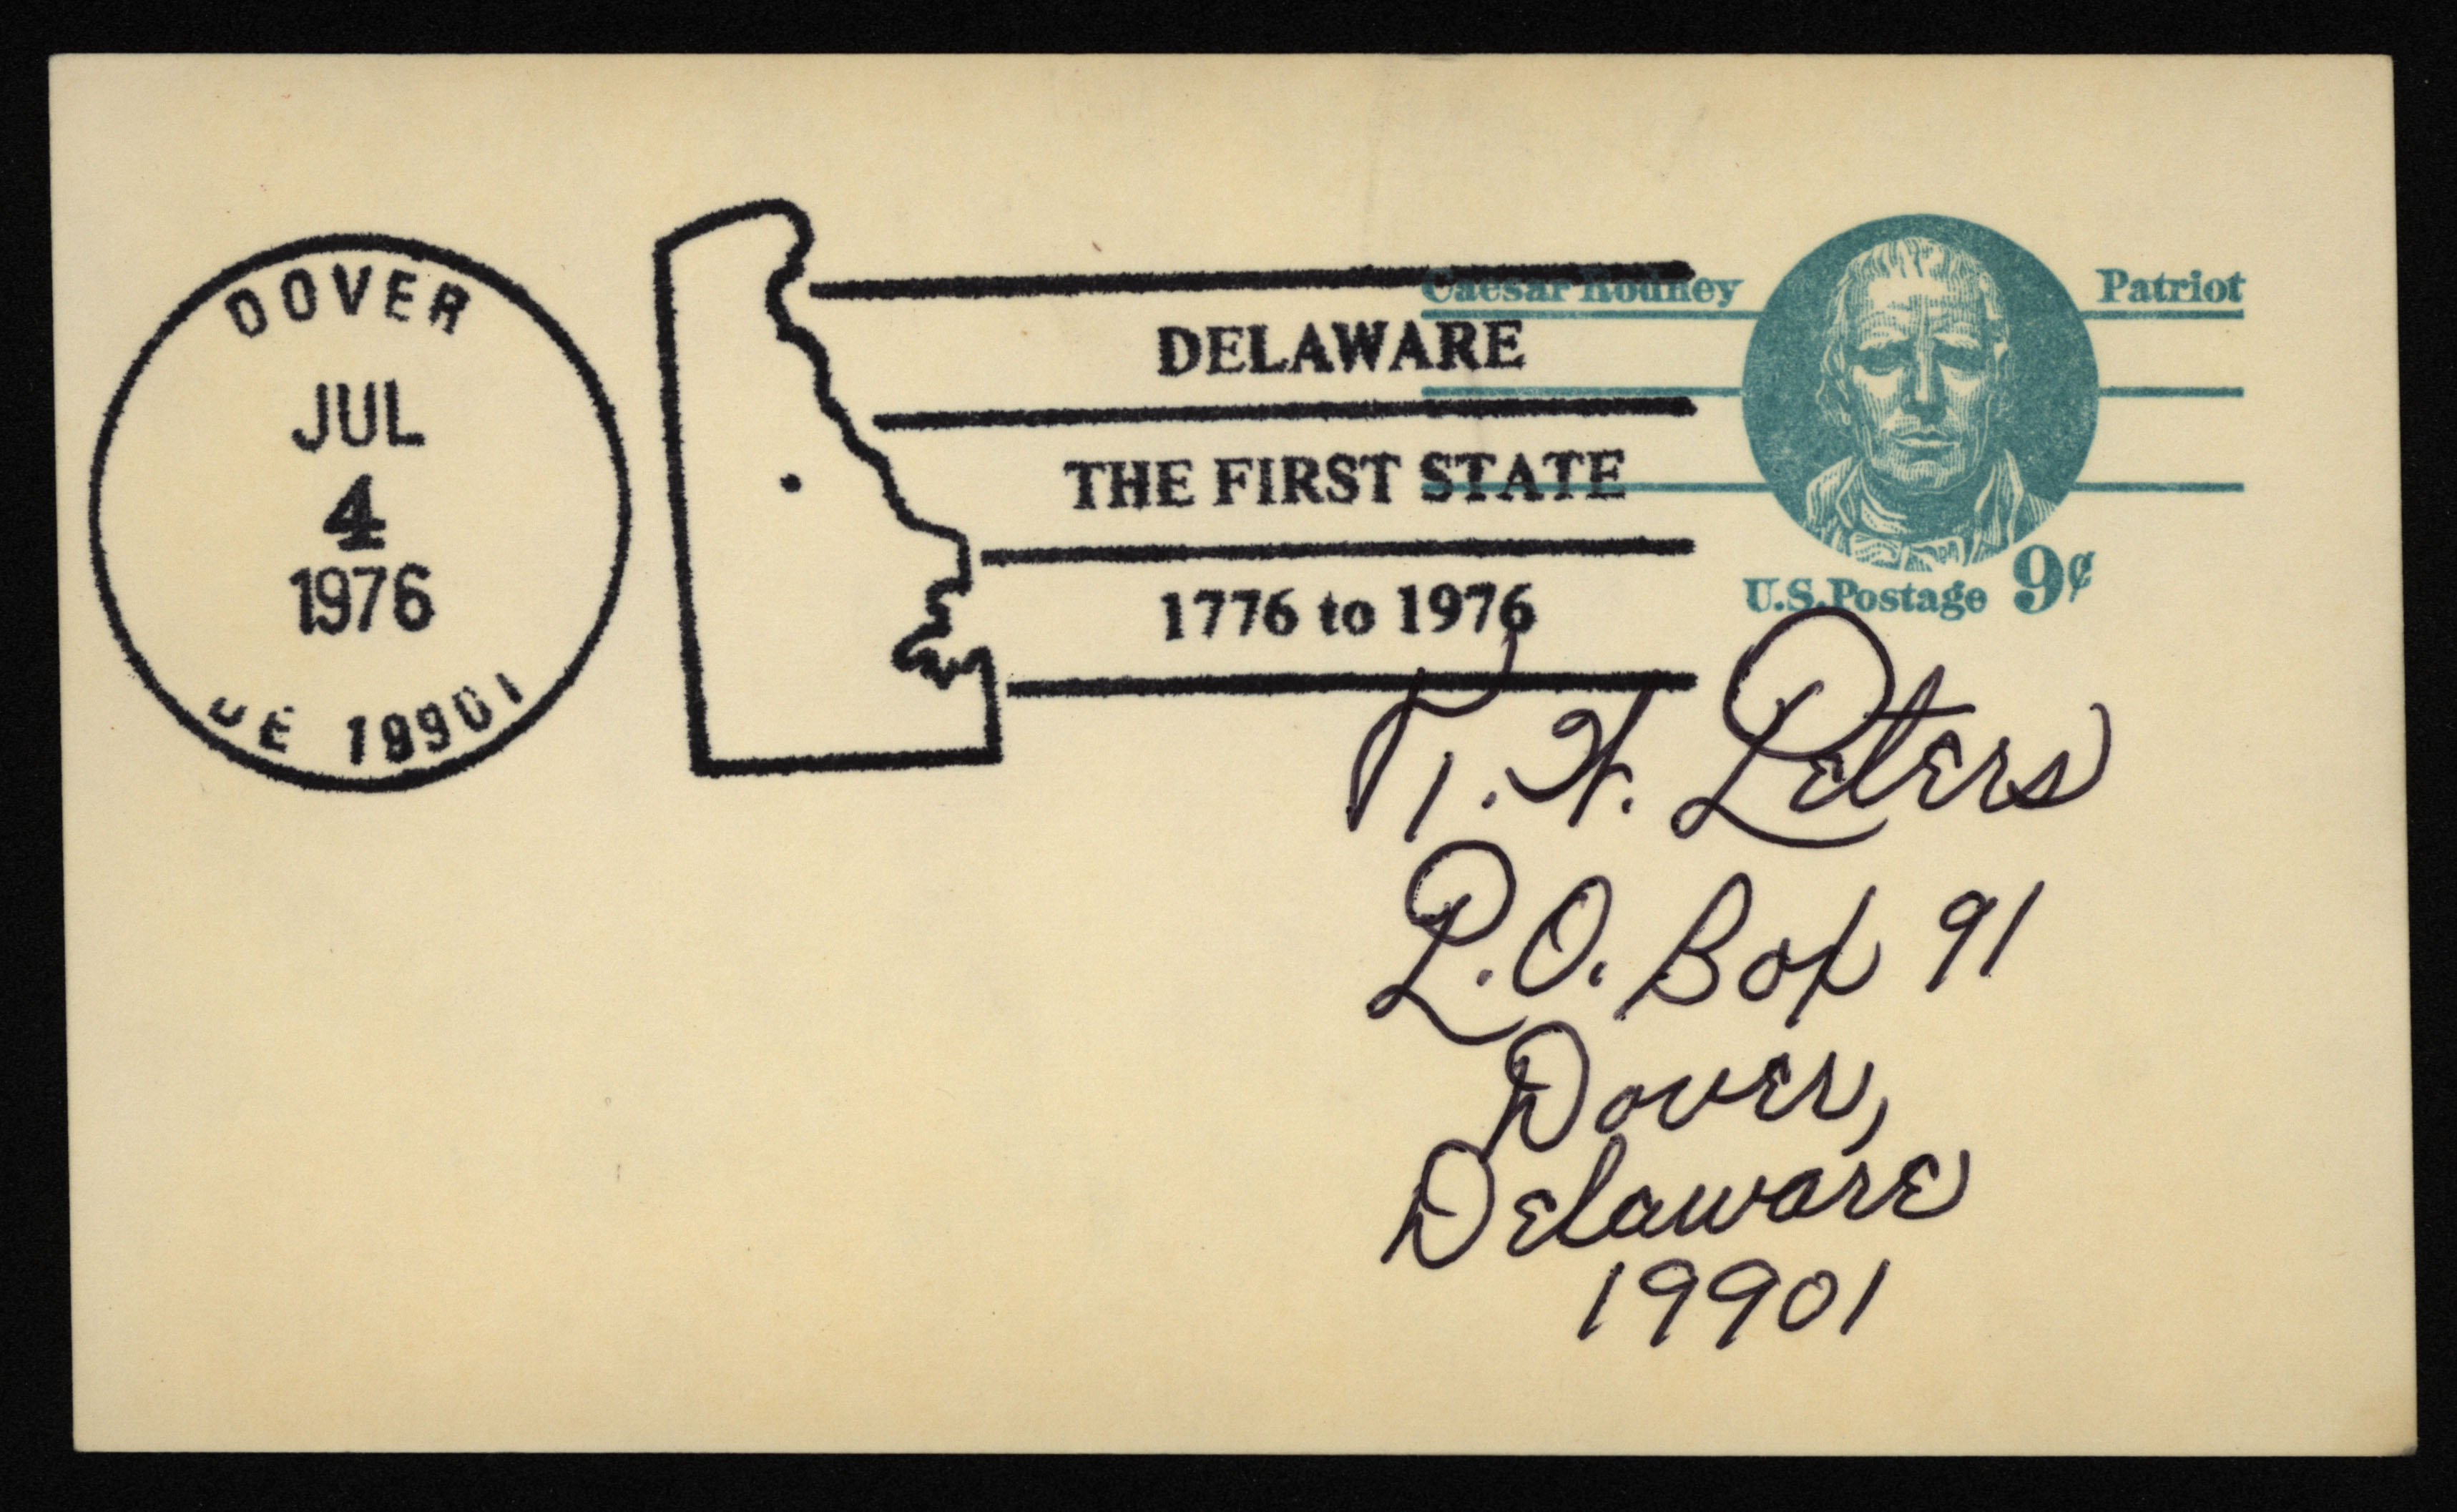 DOVER
JUL
4
1976
DE 19901
DELAWARE
THE FIRST STATE
1776 to 1976
Caesar Rodney Patriot
U.S. Postage 9¢
Peters
P.O. Box 91
Dover,
Delaware
19901